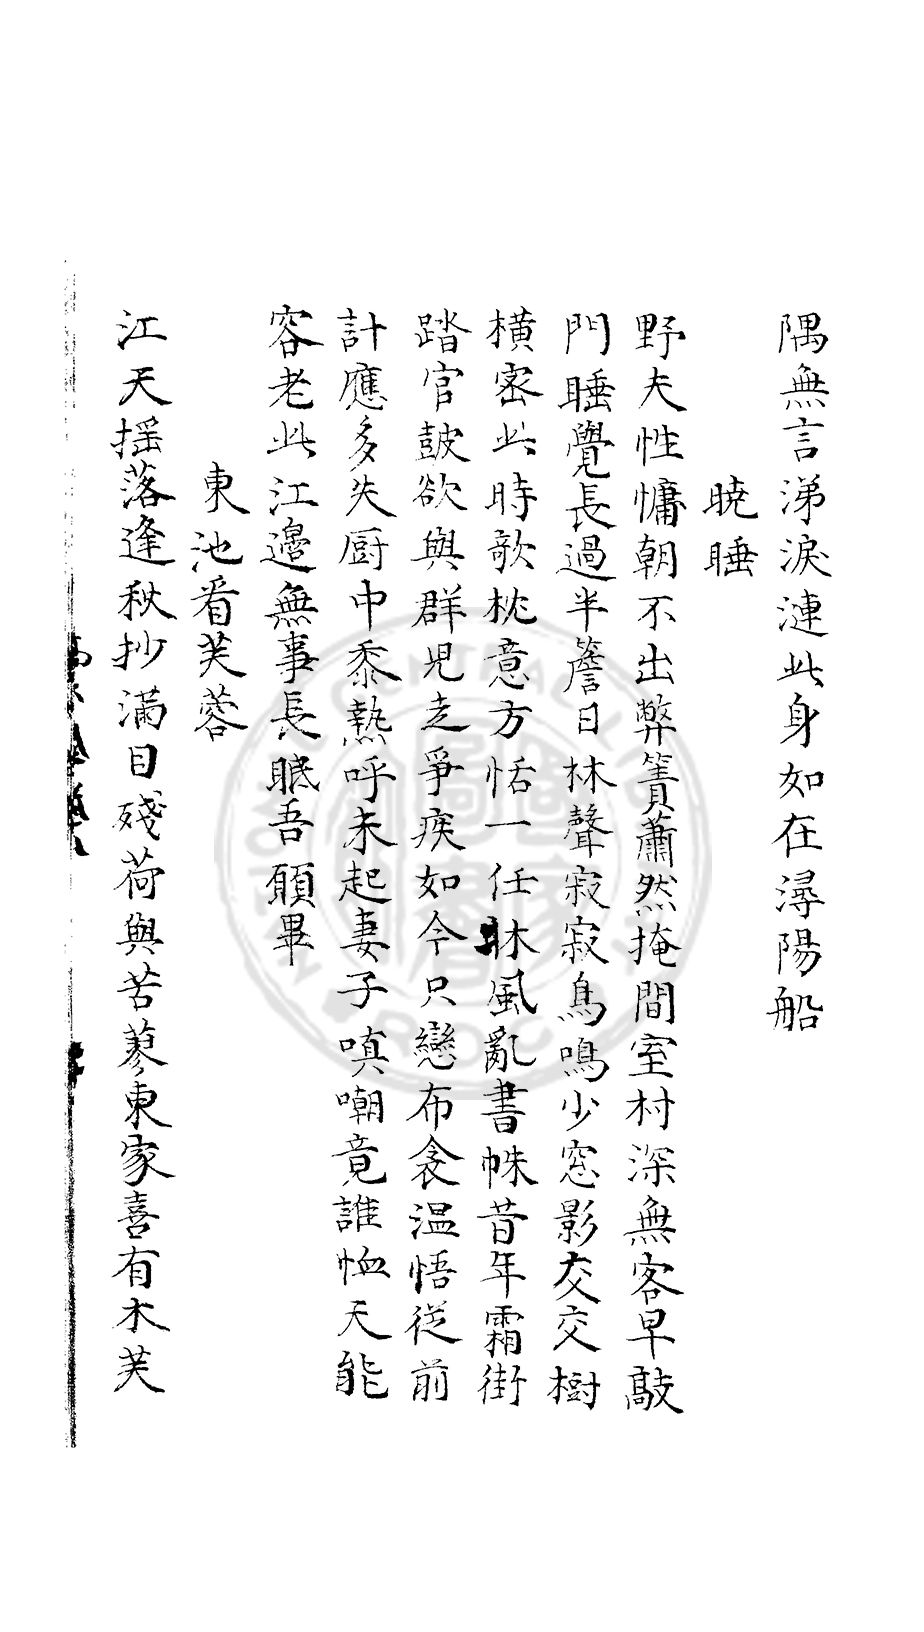 隅無言涕淚漣此身如在潯陽船
曉睡
野夫性慵朝不出弊簀蕭然掩間室村深無客早敲
門睡覺長過半簷日林聲寂寂鳥鳴少窓影交交樹
橫密此時欹枕意方恬一任牀風亂書帙昔年霜街
踏官皷欲與群児走爭疾如今只戀布衾温悟從前
計應多失厨中黍熱呼未起妻子嗔嘲竟誰恤天能
容老此江邊無事長眠吾願畢
東池看芙蓉
江天揺落逢秋抄滿目殘荷與苦蓼東家喜有木芙